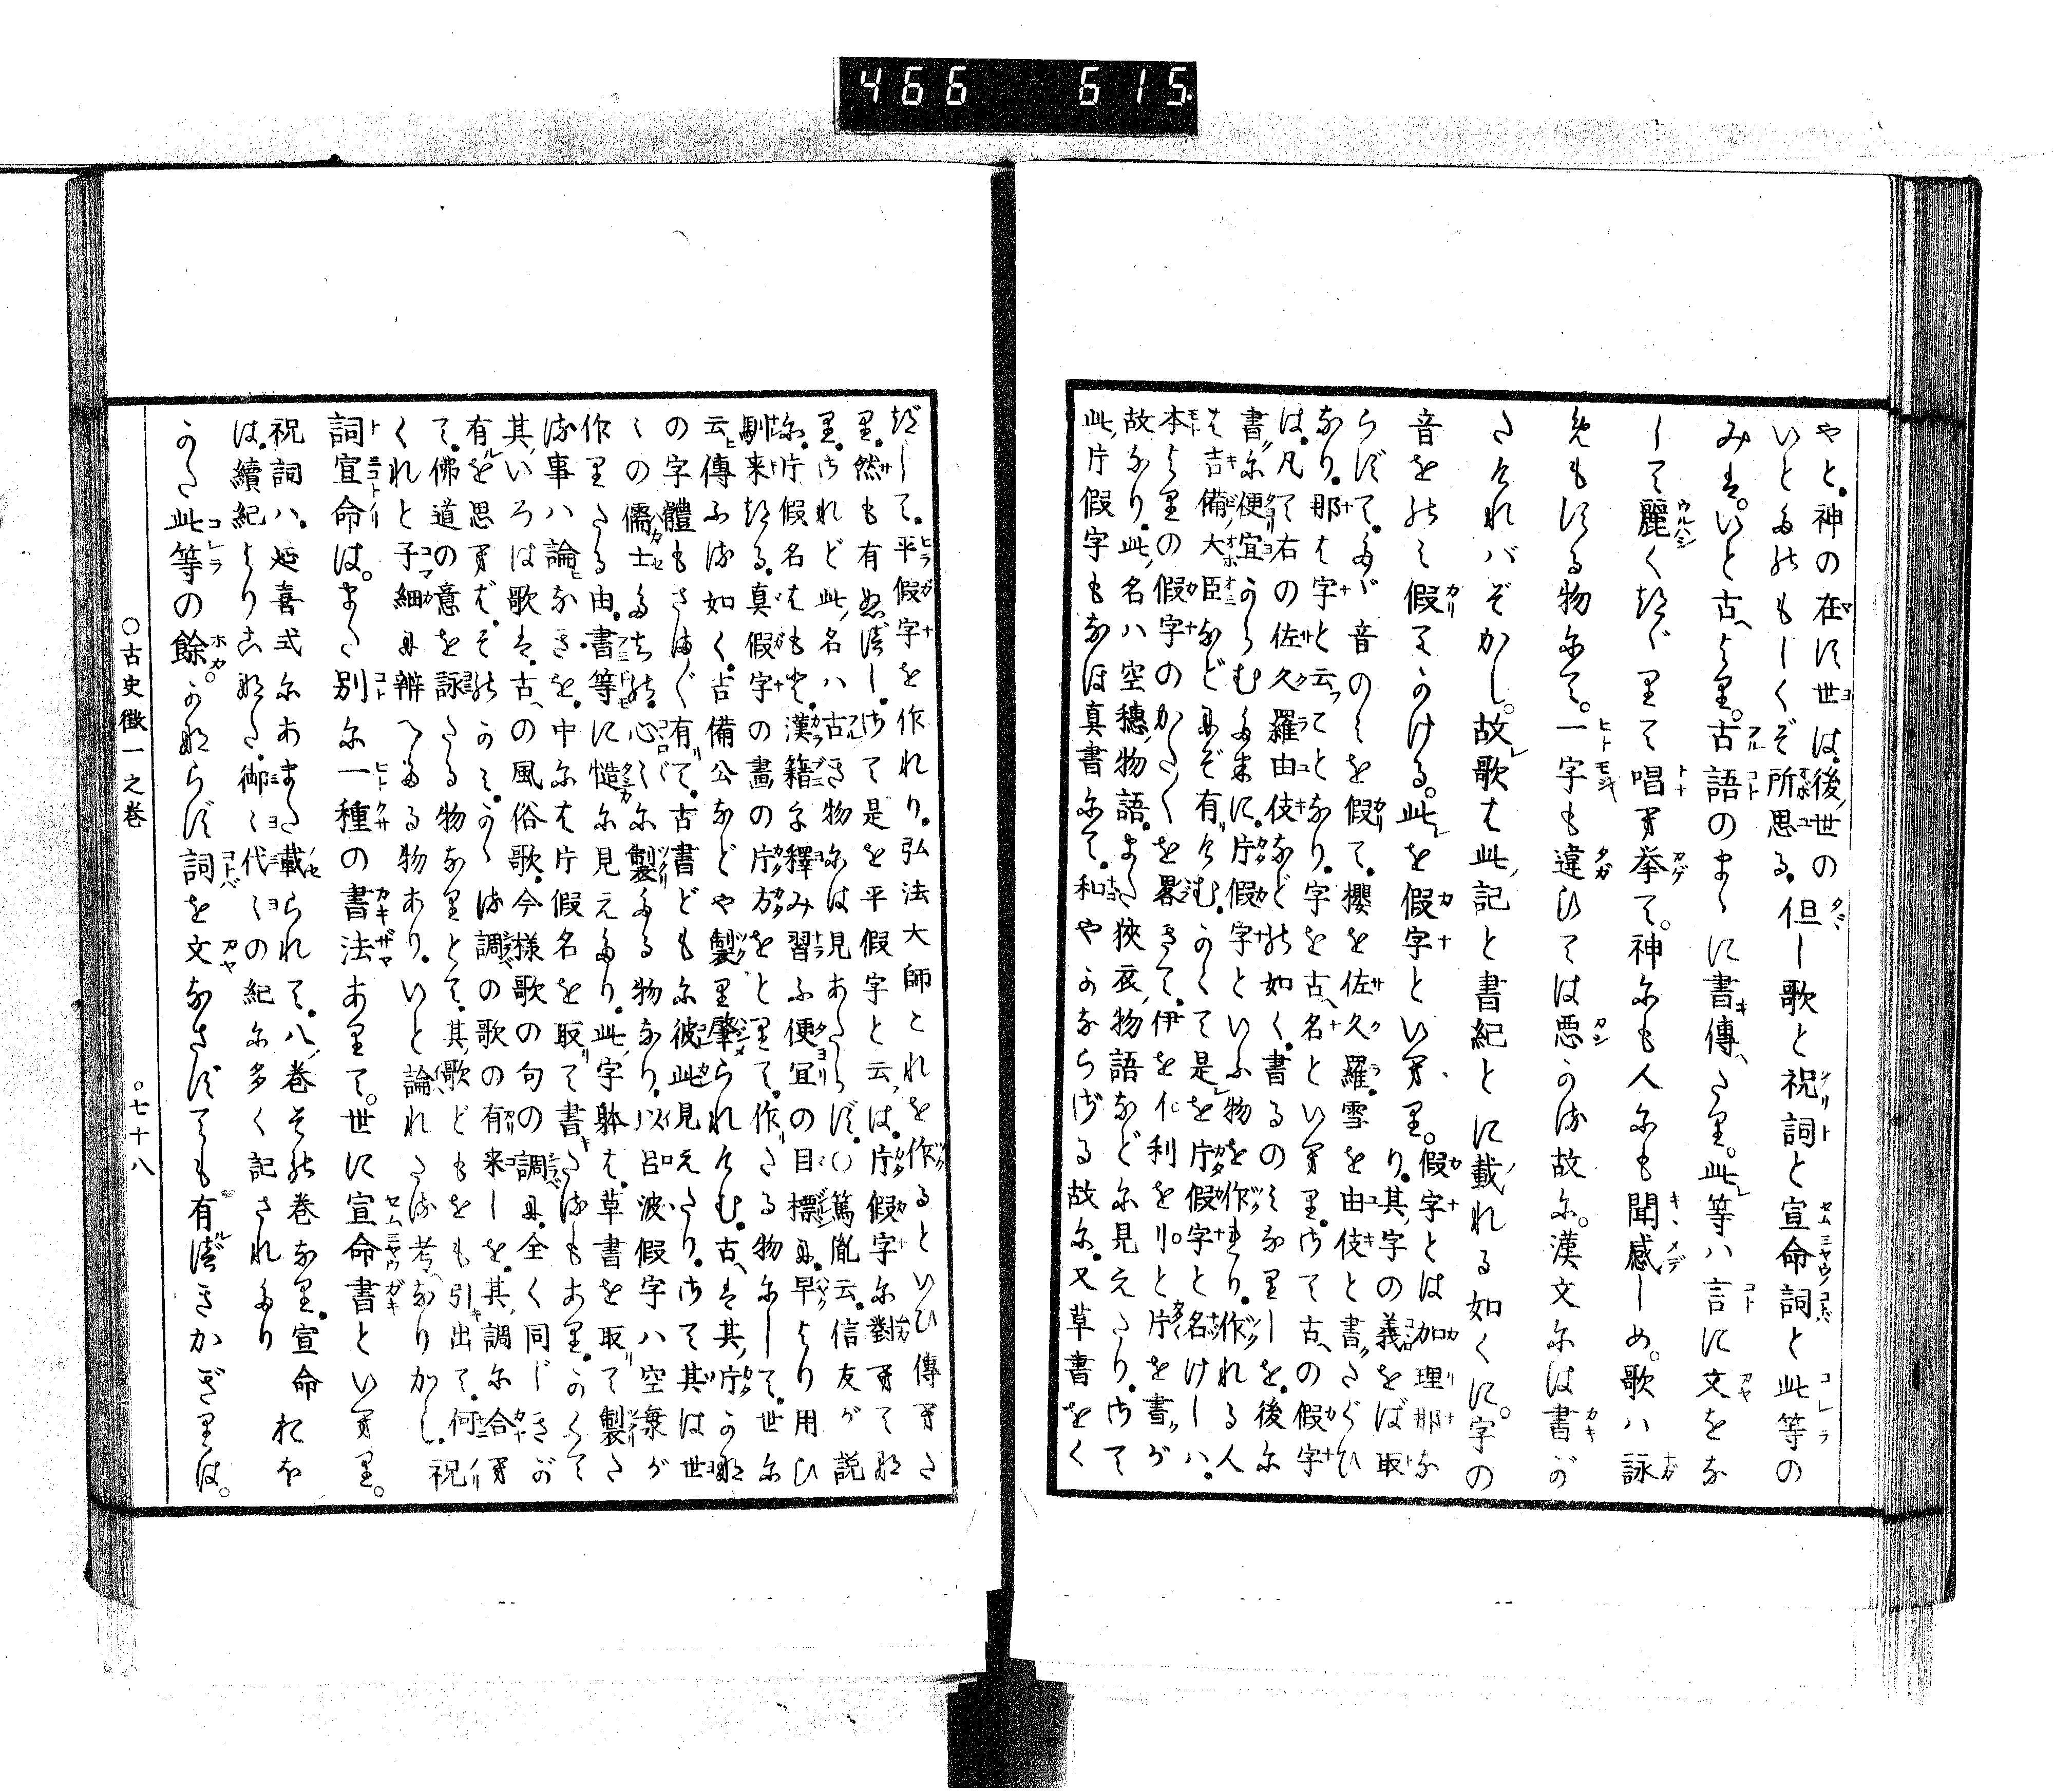 466 615
やと。神の在す世は。後世の
いとたのもしくぞ所思る。但し歌と祝詞と宣命詞と此等の
みは。いと古へより。古語のまゝに書傳へたり。此等ハ言に文をな
して麗くつゞりて唱へ挙て。神にも人にも聞感しめ。歌ハ詠
めもする物にて。一字も違ひては悪かる故に。漢文には書が
たけれバぞかし。故歌は此記と書紀とに載れる如くに。字の
音をのみ假てかける。此を假字といへり。假字とは加理那な
り。其字の義をば取
らずて。たゞ音のみを假て。櫻を佐久羅。雪を由伎と書たぐひ
なり。那は字と云ことなり。字を古へ名といへり。さて古への假字
は。凡て右の佐久羅由伎などの如く。書るのみなりしを。後に
書に便宜からむために。片假字といふ物を作れり。作れる人
は吉備大臣などにぞ有けむ。かくて是を片假字と名けしハ。
本よりの假字のかたかたを畧きて。伊をイ利をリと片を書が
故なり。此名ハ空穂物語。また狭衣物語などに見えたり。さて
此片假字もなほ真書にて。和やかならざる故に。又草書をく
づして。平假字を作れり。弘法大師これを作るといひ傳へた
り。然も有ぬべし。さて是を平假字と云は。片假字に對へてな
り。されど此名ハ古き物には見あたらず。〇篤胤云。信友が説
に。片假名はもと。漢籍を釋み習ふ便宜の目標に。早より用ひ
馴来つる。真假字の畫の片方をとりて。作たる物にして。世に
云傳ふる如く。吉備公などや製り肇られけむ。古へは其片かな
の字體もさまざま有て。古書どもに彼此見えたり。さて其は世
々の儒士たちの。心々に製たる物なり。以呂波假字ハ空海が
作りたる由。書等に慥に見えたり。此字躰は。草書を取て製た
る事ハ論なきを。中には片假名を取て書たるもあり。かくて
其いろは歌は。古への風俗歌。今様歌の句の調に。全く同じきが
有るを思へば。そのかみ。かゝる調の歌の有来しを。其調に合へ
て。佛道の意を詠たる物なりとて。其歌どもをも引出て。何
くれと子細に辨へたる物あり。いと論れたる考へなりかし。祝
詞宣命は。また別に一種の書法ありて。世に宣命書といへり。
祝詞ハ。延喜式にあまた載られて。八巻その巻なり。宣命
は。續紀よりこなた。御々代々の紀に多く記されたり
かた此等の餘。かならず詞を文なさずても有べきかぎりは。
〇古史徴一之巻
〇七十八